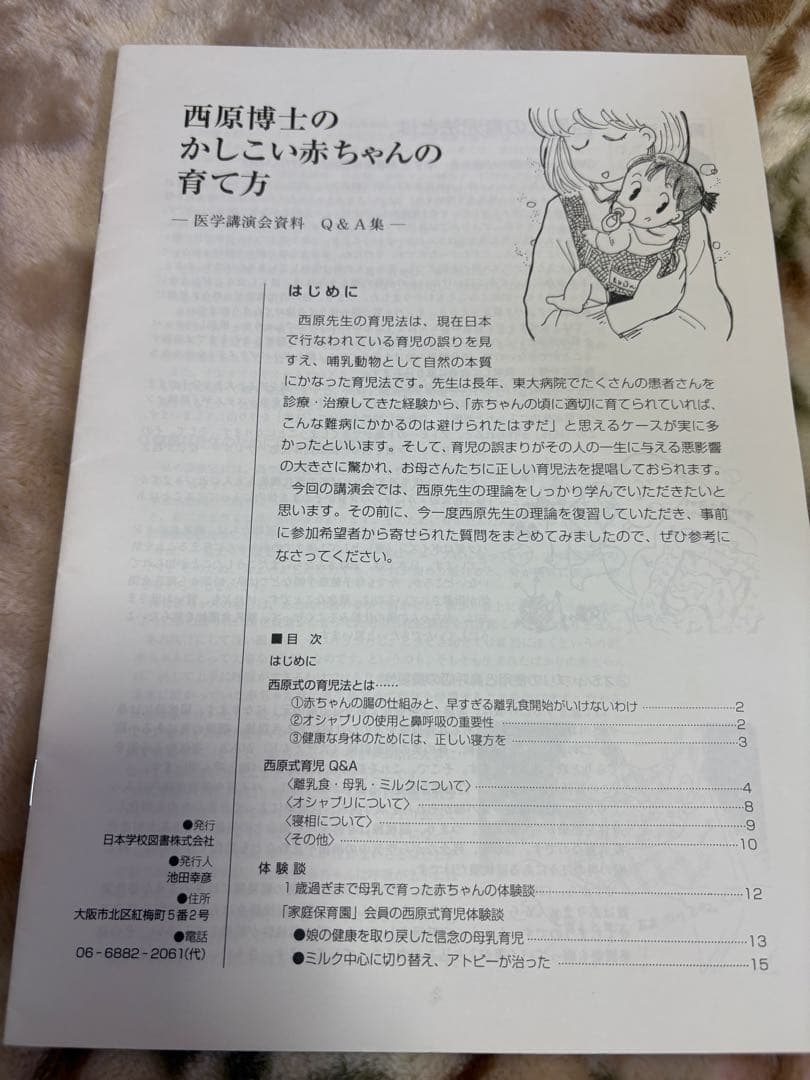 西原博士の
かしこい赤ちゃんの
育て方
― 医学講演会資料　Q＆A集 ―
はじめに
西原先生の育児法は、現在日本
で行なわれている育児の誤りを見
すえ、哺乳動物として自然の本質
にかなった育児法です。先生は長年、東大病院でたくさんの患者さんを
診療・治療してきた経験から、「赤ちゃんの頃に適切に育てられていれば、
こんな難病にかかるのは避けられたはずだ」と思えるケースが実に多
かったといいます。そして、育児の誤まりがその人の一生に与える悪影響
の大きさに驚かれ、お母さんたちに正しい育児法を提唱しておられます。
今回の講演会では、西原先生の理論をしっかり学んでいただきたいと
思います。その前に、今一度西原先生の理論を復習していただき、事前
に参加希望者から寄せられた質問をまとめてみましたので、ぜひ参考に
なさってください。
■目　次
はじめに
西原式の育児法とは……
①赤ちゃんの腸の仕組みと、早すぎる離乳食開始がいけないわけ……2
②オシャブリの使用と鼻呼吸の重要性……2
③健康な身体のためには、正しい寝方を……3
西原式育児 Q&A
〈離乳食・母乳・ミルクについて〉……4
〈オシャブリについて〉……8
〈寝相について〉……9
〈その他〉……10
体 験 談
1歳過ぎまで母乳で育った赤ちゃんの体験談……12
「家庭保育園」会員の西原式育児体験談
●娘の健康を取り戻した信念の母乳育児……13
●ミルク中心に切り替え、アトピーが治った……15
●発行
日本学校図書株式会社
●発行人
池田幸彦
●住所
大阪市北区紅梅町5番2号
●電話
06-6882-2061(代)